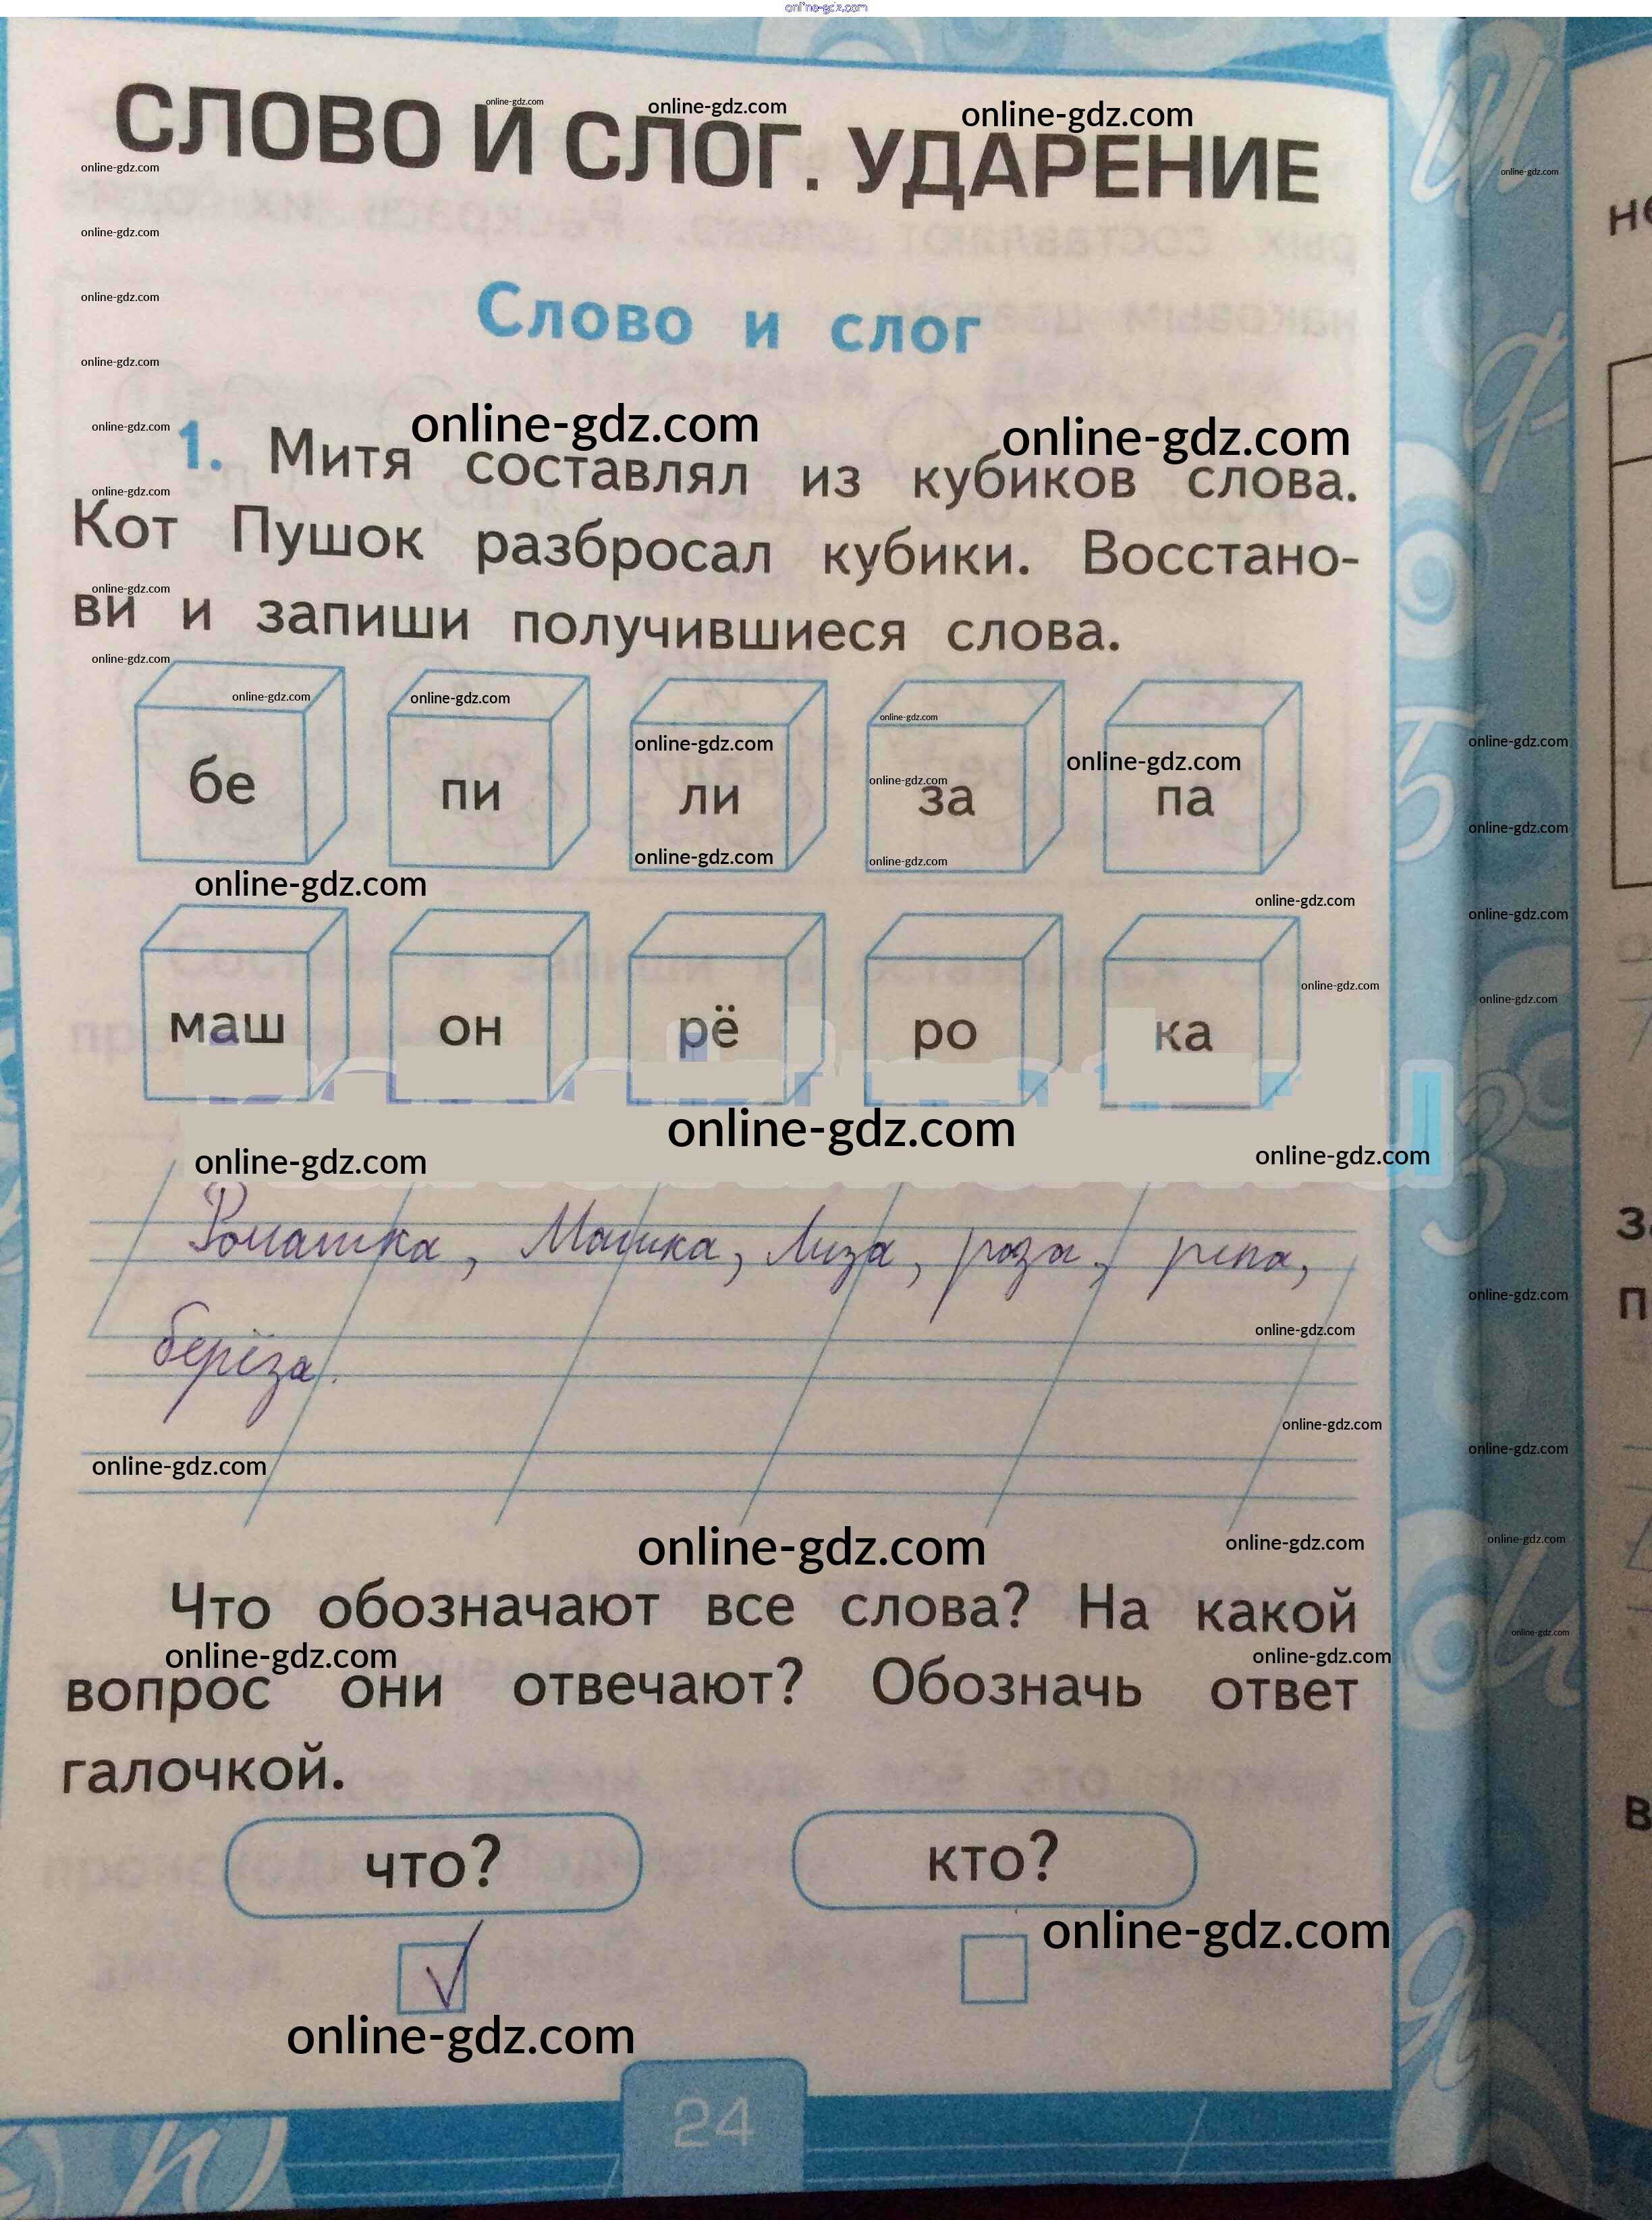 online-gdz.com
СЛОВО И СЛОГ. УДАРЕНИЕ
Слово и слог
1. Митя составлял из кубиков слова.
Кот Пушок разбросал кубики. Восстано-
ви и запиши получившиеся слова.
бе пи ли за па
маш он рё ро ка
online-gdz.com
Ромашка, Машка, Лиза, роза, репа,
берёза.
Что обозначают все слова? На какой
вопрос они отвечают? Обозначь ответ
галочкой.
что? кто?
online-gdz.com
24